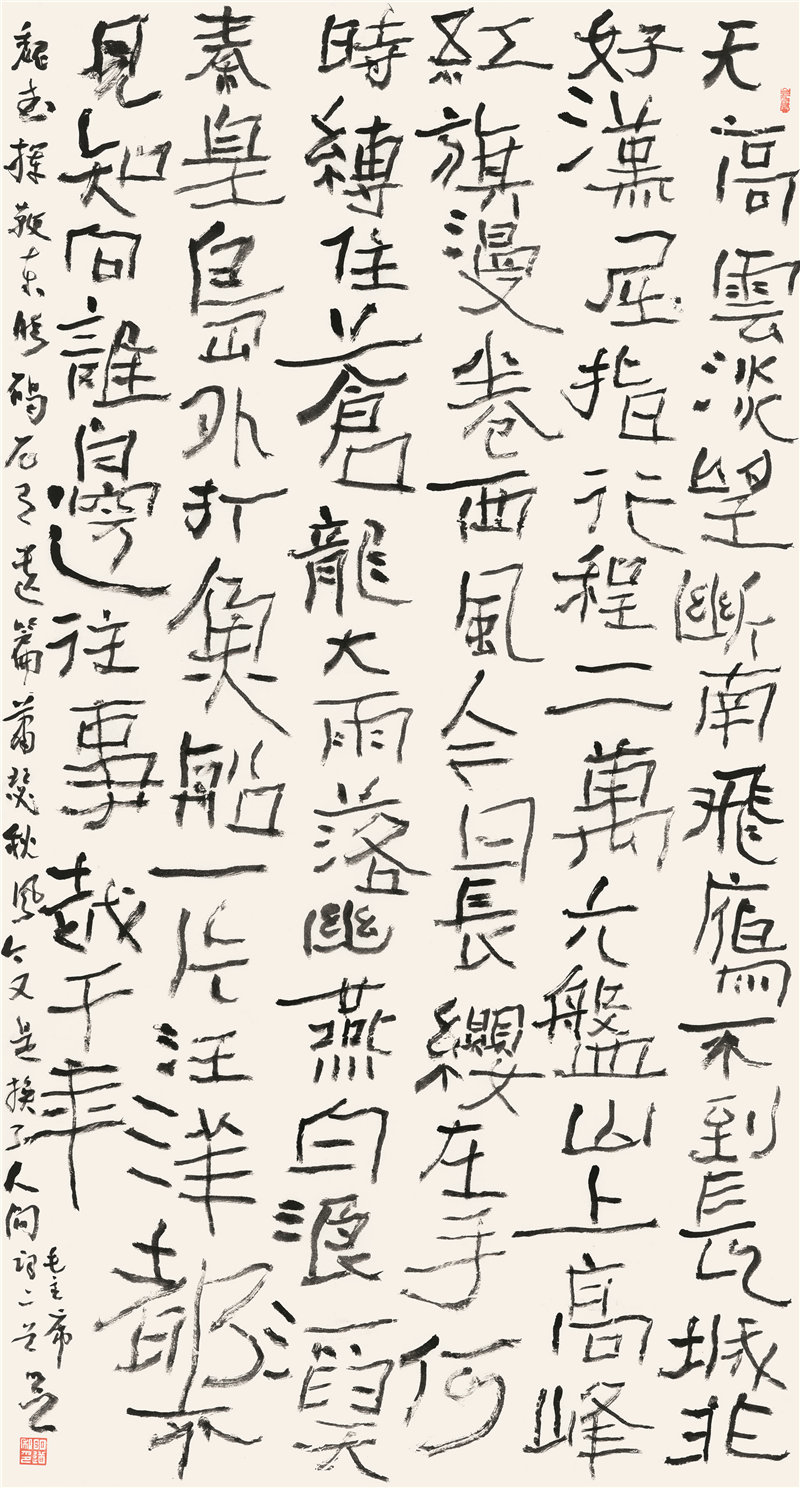 天高雲淡望斷南飛鴈不到長城非
好漢屈指行程二萬六盤山上高峰
紅旗漫卷西風今日長纓在手何
時縛住蒼龍大雨落幽燕白浪滔天
秦皇島外打魚船一片汪洋都不
見知向誰邊往事越千年
魏武揮鞭東臨碣石有遺篇蕭瑟秋風今又是換了人间
毛主席
詞二首